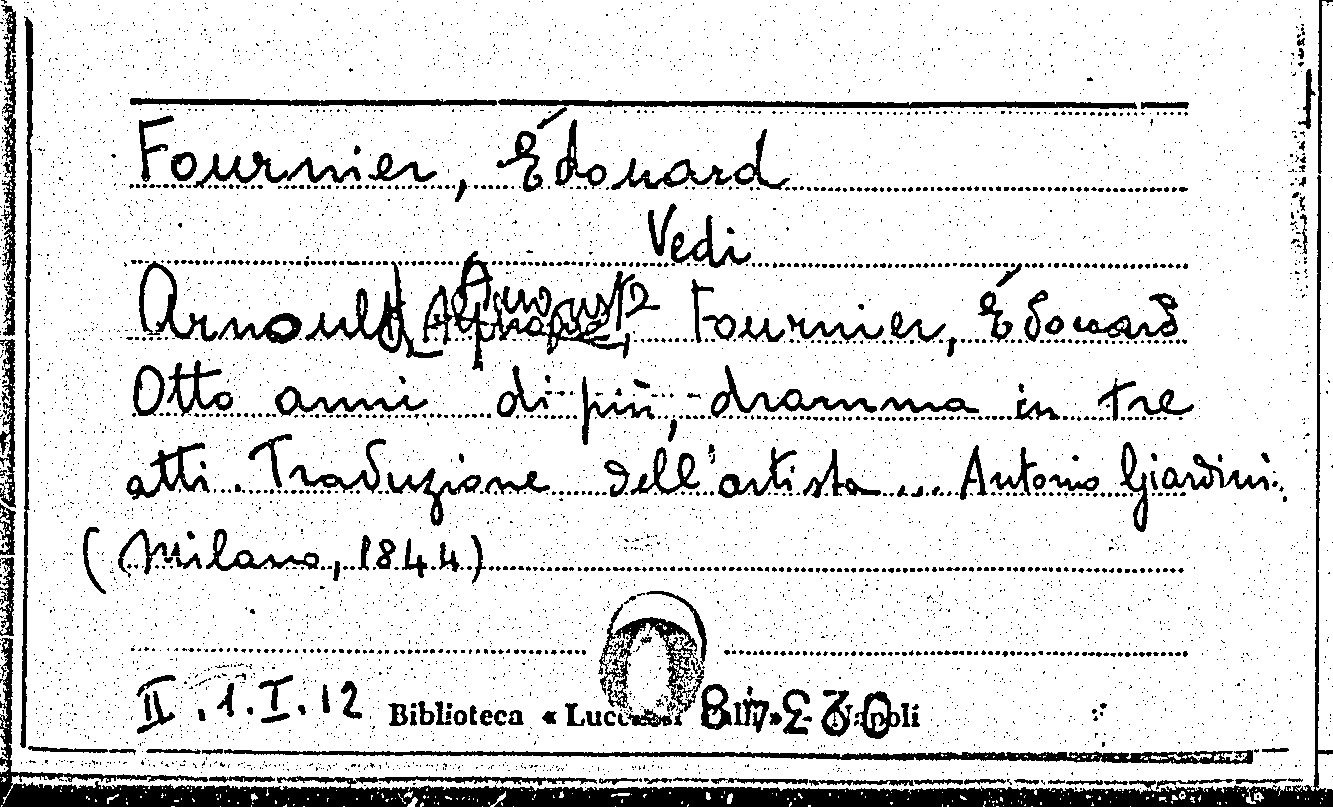 Fournier, Édouard
Vedi
Arnould, Auguste Fournier, Édouard
Otto anni di più, dramma in tre
atti. Traduzione dell'artista... Antonio Giardini.
(Milano, 1844)
II.1.I.12 Biblioteca « Lucchesi Palli » - Napoli